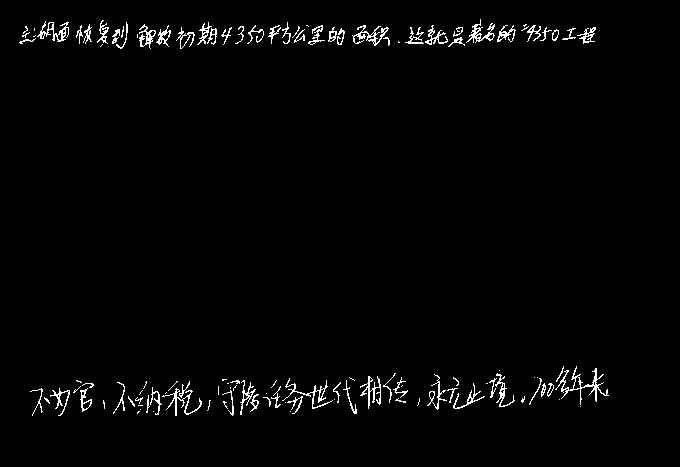 主湖面恢复到解放初期4350平方公里的面积.这就是著名的“4350工程
不为官,不纳税,守陵任务世代相传,永无止境.700多年来